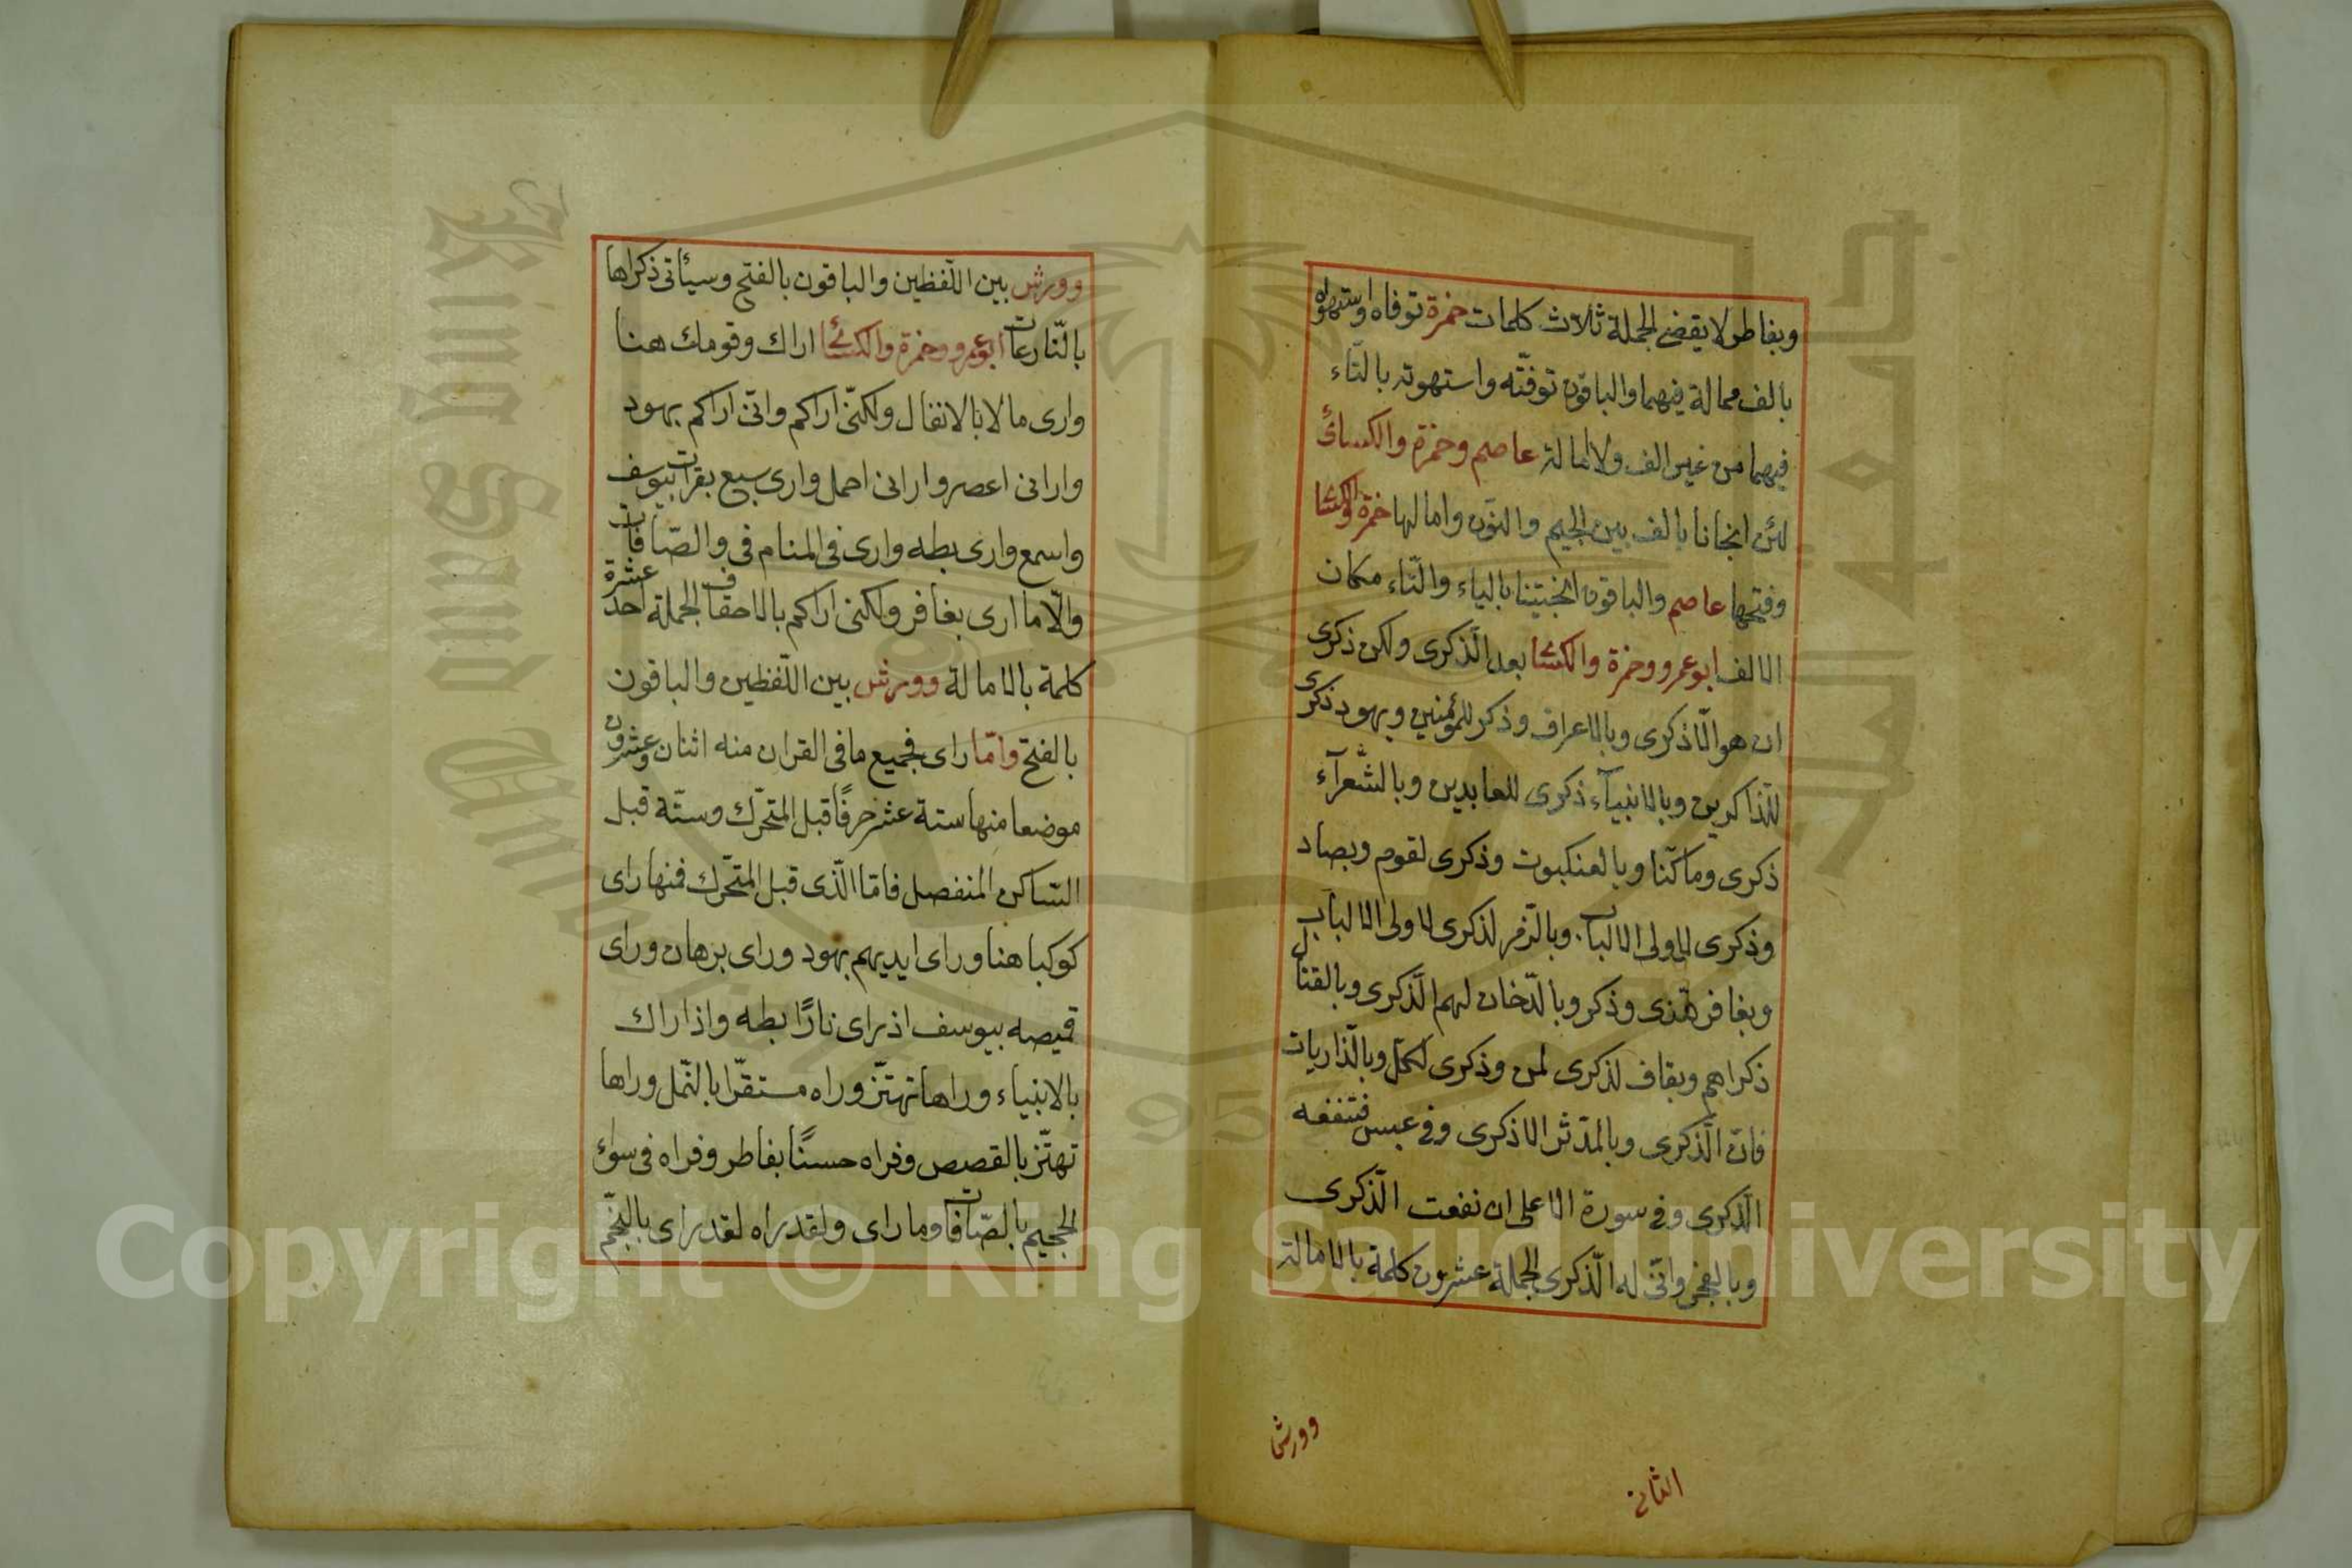 وبفاطر لا يقضى الجملة ثلاث كلمات حمزة توفاه واستهواه
بألف ممالة فيهما والباقون توفّته واستهوته بالتّاء
فيهما من غير الف ولا امالة عاصم وحمزة والكسائ
لئن انجانا بالف بين الجيم والنون وامالها حمزة والكسا
وفتحها عاصم والباقون انجيتنا بالياء والتّاء مكان
الالف ابو عمرو وحمزة والكسا بعد الذّكرى ولكن ذكرى
ان هو الّا ذكرى وبالاعراف وذكر للمؤمنين وبهود ذكرى
للذّاكرين وبالانبيآء ذكرى للعابدين وبالشّعرآء
ذكرى وما كنّا وبالعنكبوت وذكرى لقوم وبصاد
وذكرى لاولى الالباب وبالزّمر لذكرى لاولى الالباب
وبغافر هدى وذكر وبالدّخان لهم الذّكرى وبالقتال
ذكراهم وبقاف لذكرى لمن وذكرى لكلّ وبالذّاريات
فانّ الذّكرى وبالمدّثر الا ذكرى وفى عبس فتنفعه
الذّكرى وفى سورة الاعلى ان نفعت الذّكرى
وبالفجر وانّى له الذّكرى الجملة عشرون كلمة بالامالة
وورش
الثانى
وورش بين اللّفظين والباقون بالفتح وسيأتى ذكراها
بالنّازعات ابو عمرو وحمزة والكسائ اراك وقومك هنا
وارى ما لا بالانفال ولكنّى اراكم وانّى اراكم بهود
وارانى اعصر وارانى احمل وارى سبع بقرات بيوسف
واسمع وارى بطه وارى فى المنام فى والصّافات
والّا ما ارى بغافر ولكنى اراكم بالاحقاف الجملة احد عشرة
كلمة بالامالة وورش بين اللّفظين والباقون
بالفتح وامّا راى فجميع ما فى القران منه اثنان وعشرون
موضعا منها ستة عشر حرفًا قبل المتحّرك وستّة قبل
السّاكن المنفصل فامّا الّذى قبل المتحّرك فمنها راى
كوكبا هنا وراى ايديهم بهود وراى برهان وراى
قميصه بيوسف اذ راى نارًا بطه واذا راك
بالانبياء وراها تهتّز وراه مستقّرا بالنّمل وراها
تهتّز بالقصص وفراه حسنًا بفاطر وفراه فى سوٰئ
الجحيم بالصّافات وما راى ولقد راه لقد راى بالنّجم
Copyright © King Saud University